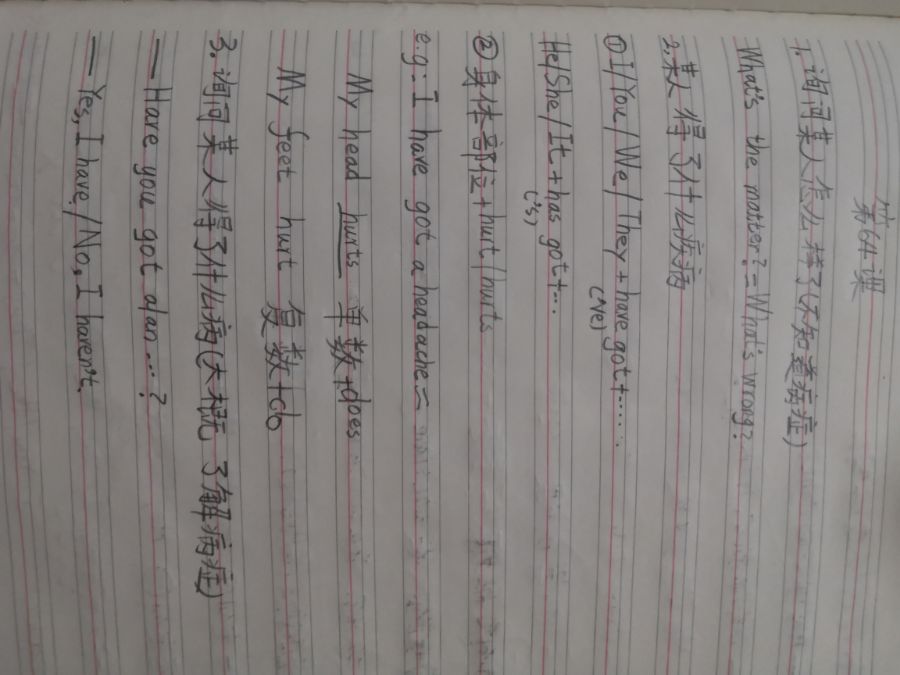 第64课
1. 询问某人怎么样了(不知道病症)
What's the matter?=What's wrong?
2. 某人得了什么疾病
①I/You/We/They+have got+……
('ve)
He/She/It+has got+…
('s)
②身体部位+hurt/hurts
e.g: I have got a headache=
My head hurts 单数+does
My feet hurt 复数+do
3. 询问某人得了什么病(大概了解病症)
—Have you got a/an…?
—Yes, I have./No, I haven't.